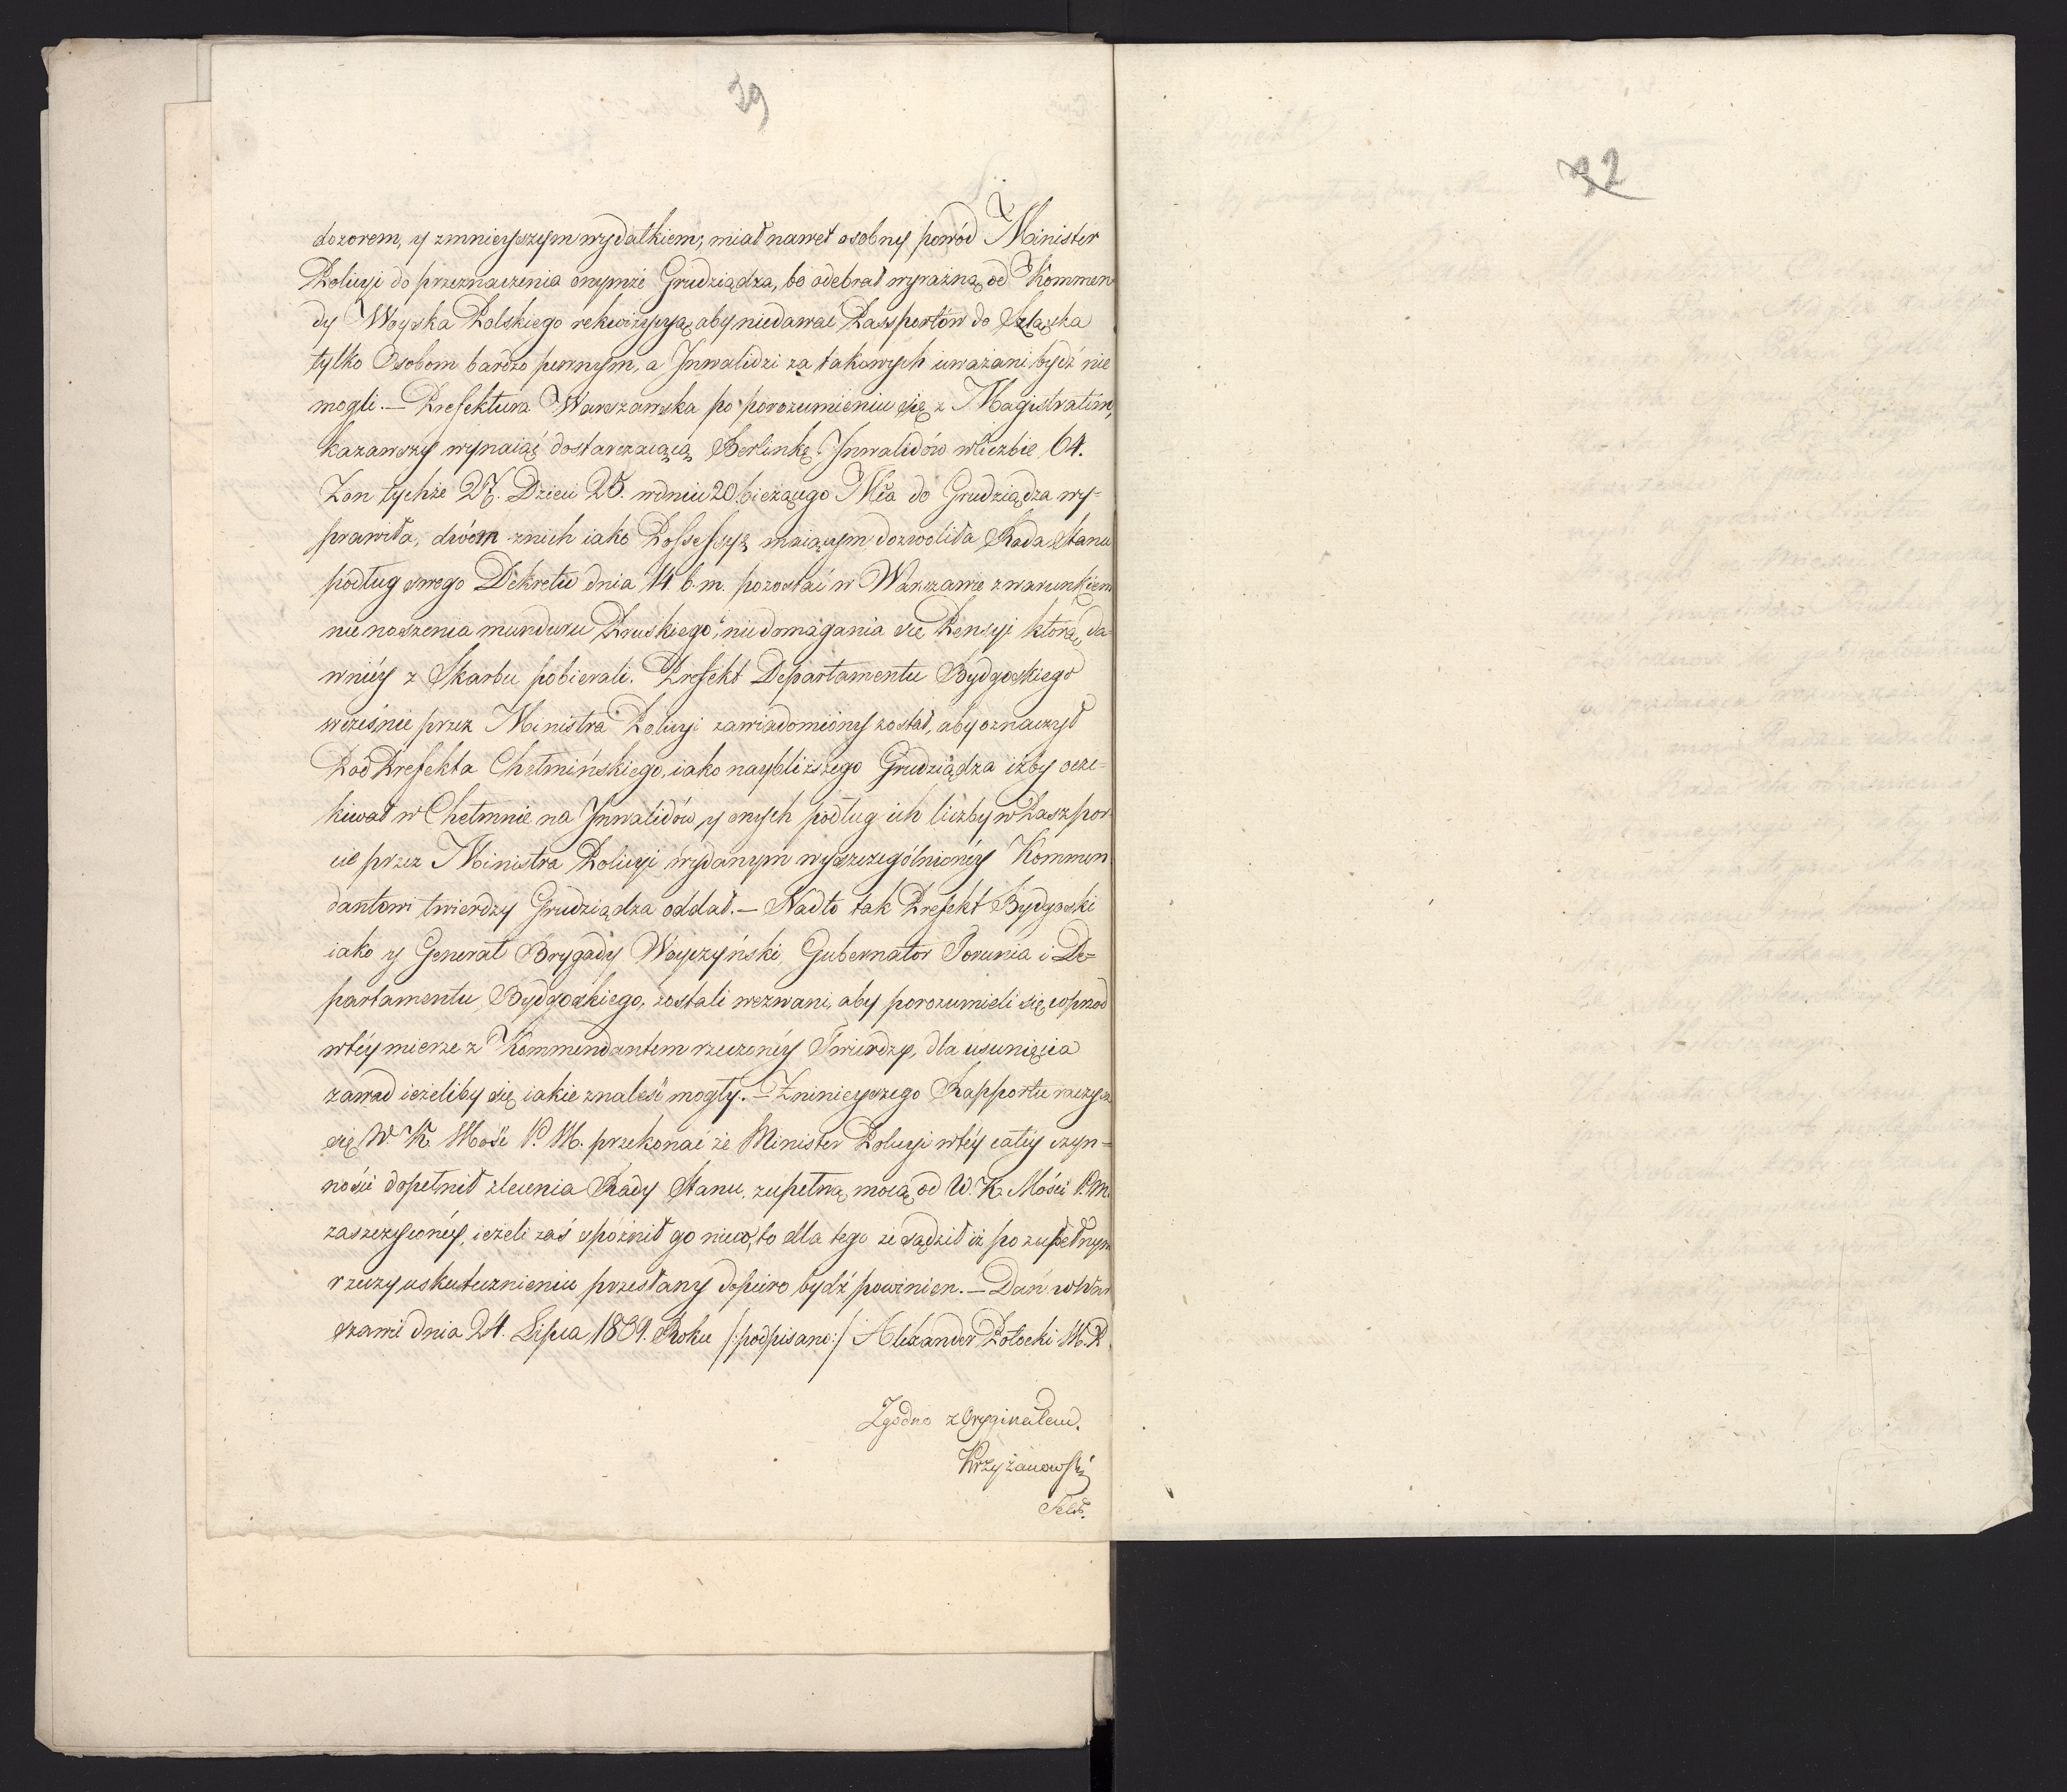 39
dozorem, y zmnieyszym wydatkiem, miał nawet osobny powód Minister
Policyi do przeznaczenia onymże Grudziądza, bo odebrał wyraźną od Kommen
dy Woyska Polskiego rekwizycyą, aby niedawać Passportów do Szląska
tylko Osobom bardzo pewnym, a Jnwalidzi za takowych uważani bydź nie
mogli. — Prefektura Warszawska po porozumieniu się z Magistratem,
kazawszy wynaiąć dostarczaiącą Berlinkę, Jnwalidów wliczbie 64.
Zon tychże 27. Dzieci 25. wdniu 20 bieżącego Mca do Grudziądza wy-
prawiła, dwóm znich iako Possessyą maiącym dozwoliła Rada Stanu
podług swego Dekretu dnia 14 b. m. pozostać w Warszawie zwarunkiem
nie noszenia munduru Pruskiego, niedomagania się Pensyi którą da-
wniéy z Skarbu pobierali. Prefekt Departamentu Bydgoskiego
wcześnie przez Ministra Policyi zawiadomiony został, aby oznaczył
Pod Prefekta Chełmińskiego, iako naybliższego Grudziądza iżby ocze-
kiwał w Chełmnie na Jnwalidów, y onych podług ich liczby w Paszpor-
cie przez Ministra Policyi wydanym wyszczególnionéy Kommen
dantowi twierdzy Grudziądza oddał. — Nadto tak Prefekt Bydgoski
iako y Generał Brygady Woyczyński, Gubernator Torunia i De-
partamentu Bydgoskiego, zostali wezwani, aby porozumieli się wprzod
wtéy mierze z Kommendantem rzeczonéy Twierdzy, dla usunięcia
zawad ieżeliby się iakie znaleść mogły. — Zninieyszego Rapportu raczysz
się W. K. Mość P. M. przekonać że Minister Policyi wtéy całéy czyn-
ności dopełnił zlecenia Rady Stanu, zupełną mocą od W. K. Mości P. M.
zaszczyconéy, ieżeli zaś spóźnił go nieco, to dla tego że sądził iż po zupełnym
rzeczy uskutecznieniu przesłany dopiero bydź powinien. — Dań w War
szawie dnia 24. Lipca 1809. Roku /:podpisano:/ Alexander Potocki M. P.
Zgodno z Oryginałem.
Krzyżanowski
Sekr.
32